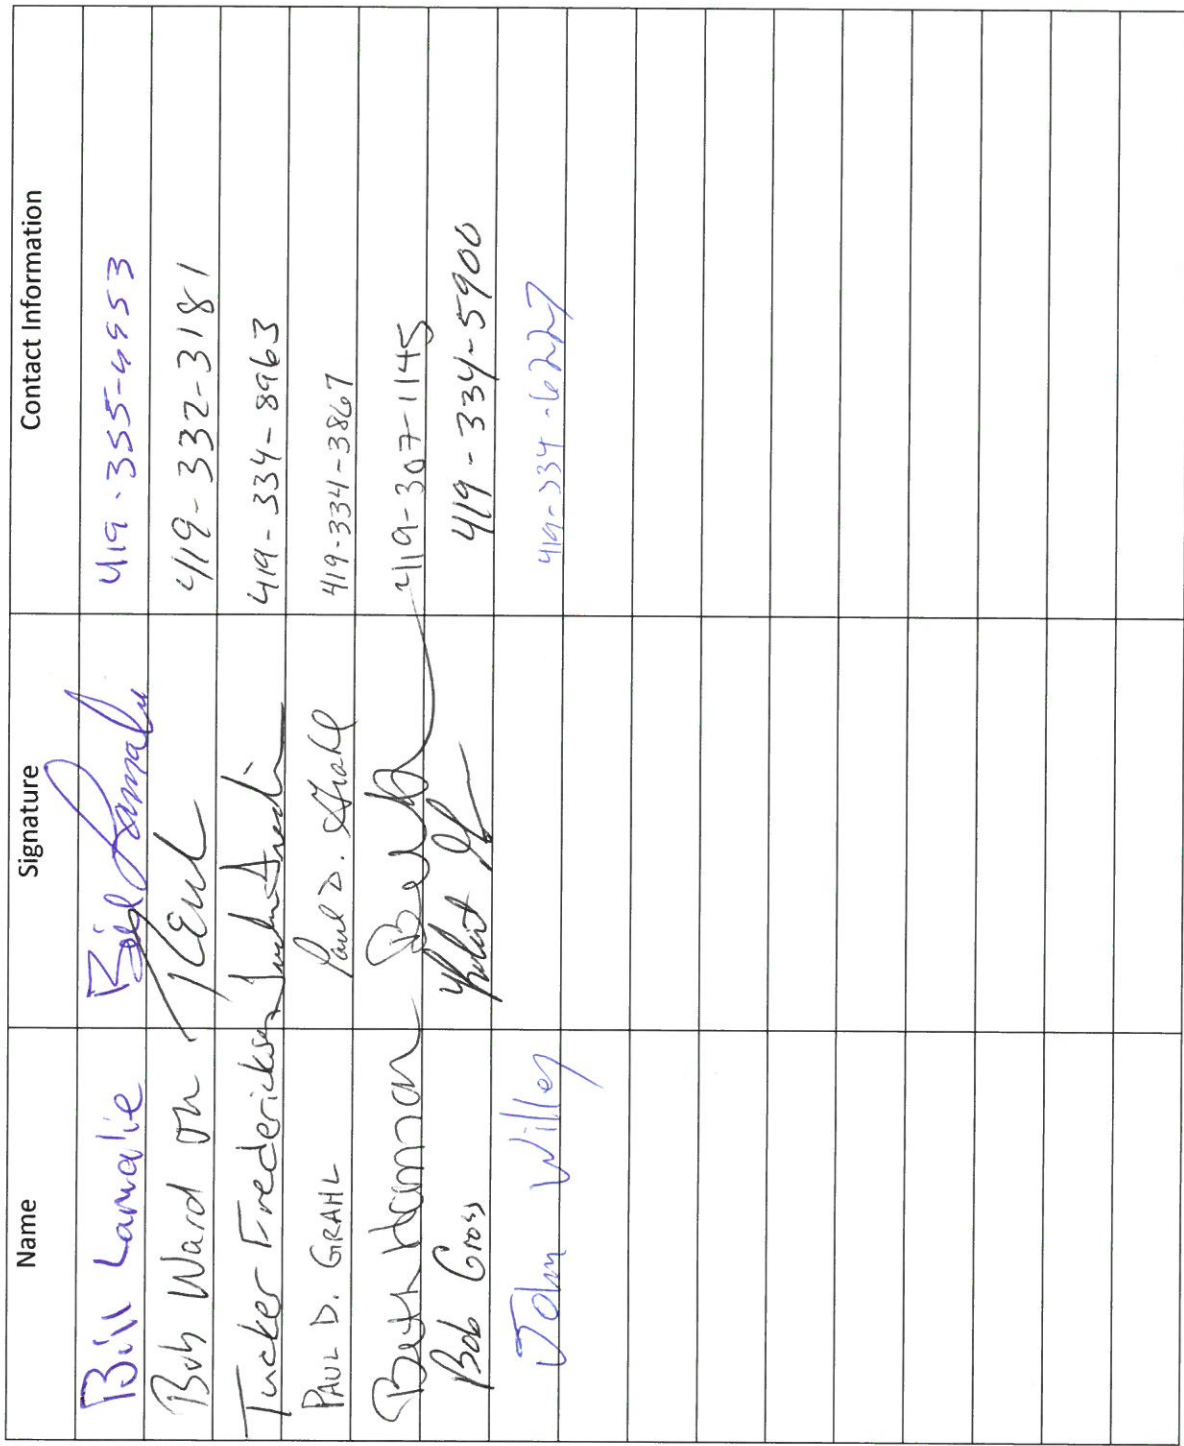 Name Signature Contact Information
Bill Lamalie Bill Lamalie 419-355-4953
Bob Ward 419-332-3181
Tucker Fredericksen 419-334-8963
PAUL D. GRAHL Paul D. Grahl 419-334-3867
Beth Hannan 419-307-1145
Bob Gross Robert 419-334-5900
John Willey 419-334-6227